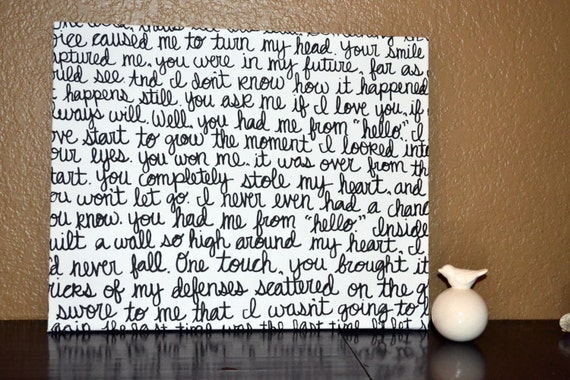 one word,
oice caused me to turn my head. Your smile
aptured me, you were in my future, far as
ould see. And I don't know how it happened
t happens still. you ask me if I love you, if
lways will. Well, you had me from "hello," I
ove start to grow the moment I looked into
our eyes. you won me, it was over from th
tart. you completely stole my heart, and
ou won't let go. I never even had a chanc
ou know. you had me from "hello." Inside
uilt a wall so high around my heart, I
d never fall. One touch, you brought it
ricks of my defenses scattered on the g
swore to me that I wasn't going to
again the last time was the last time I'd let s